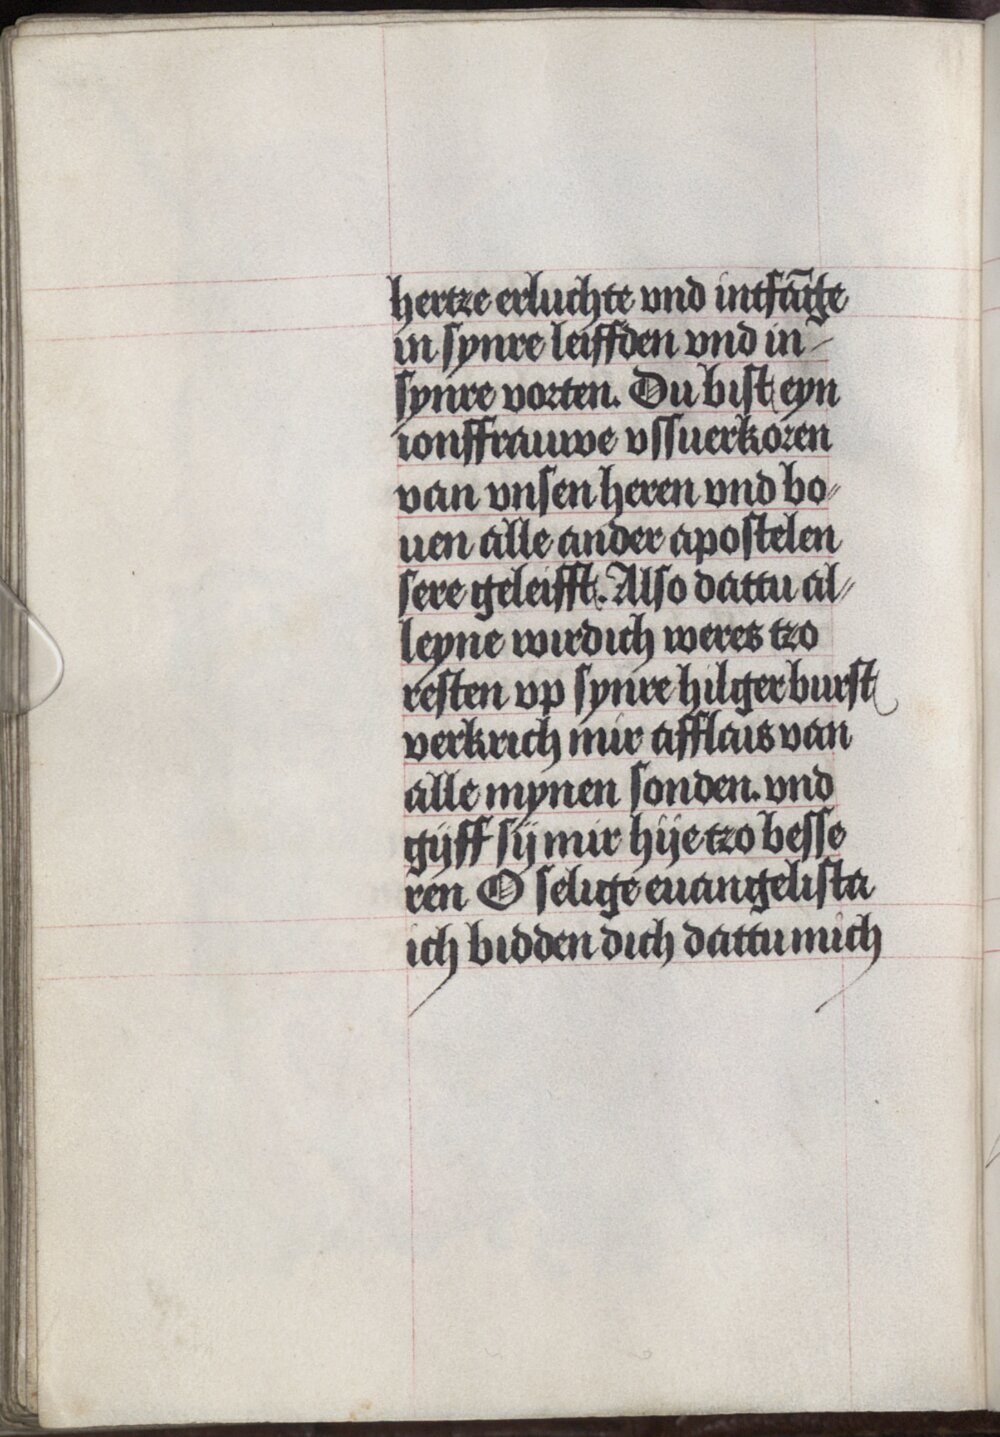 hertze erluchte vnd intfāge
in synre leiffden vnd in-
synre vorten. Du bist eyn
ionffrauwe vssuerkoren
van vnsen heren vnd bo-
uen alle ander apostelen
sere geleifft. Also dattu al-
leyne wirdich weres tzo
resten vp synre hilger burst
verkrich mir afflais van
alle mynen sonden. vnd
gijff sij mir hije tzo besse
ren O selige euangelista
ich bidden dich dattu mich